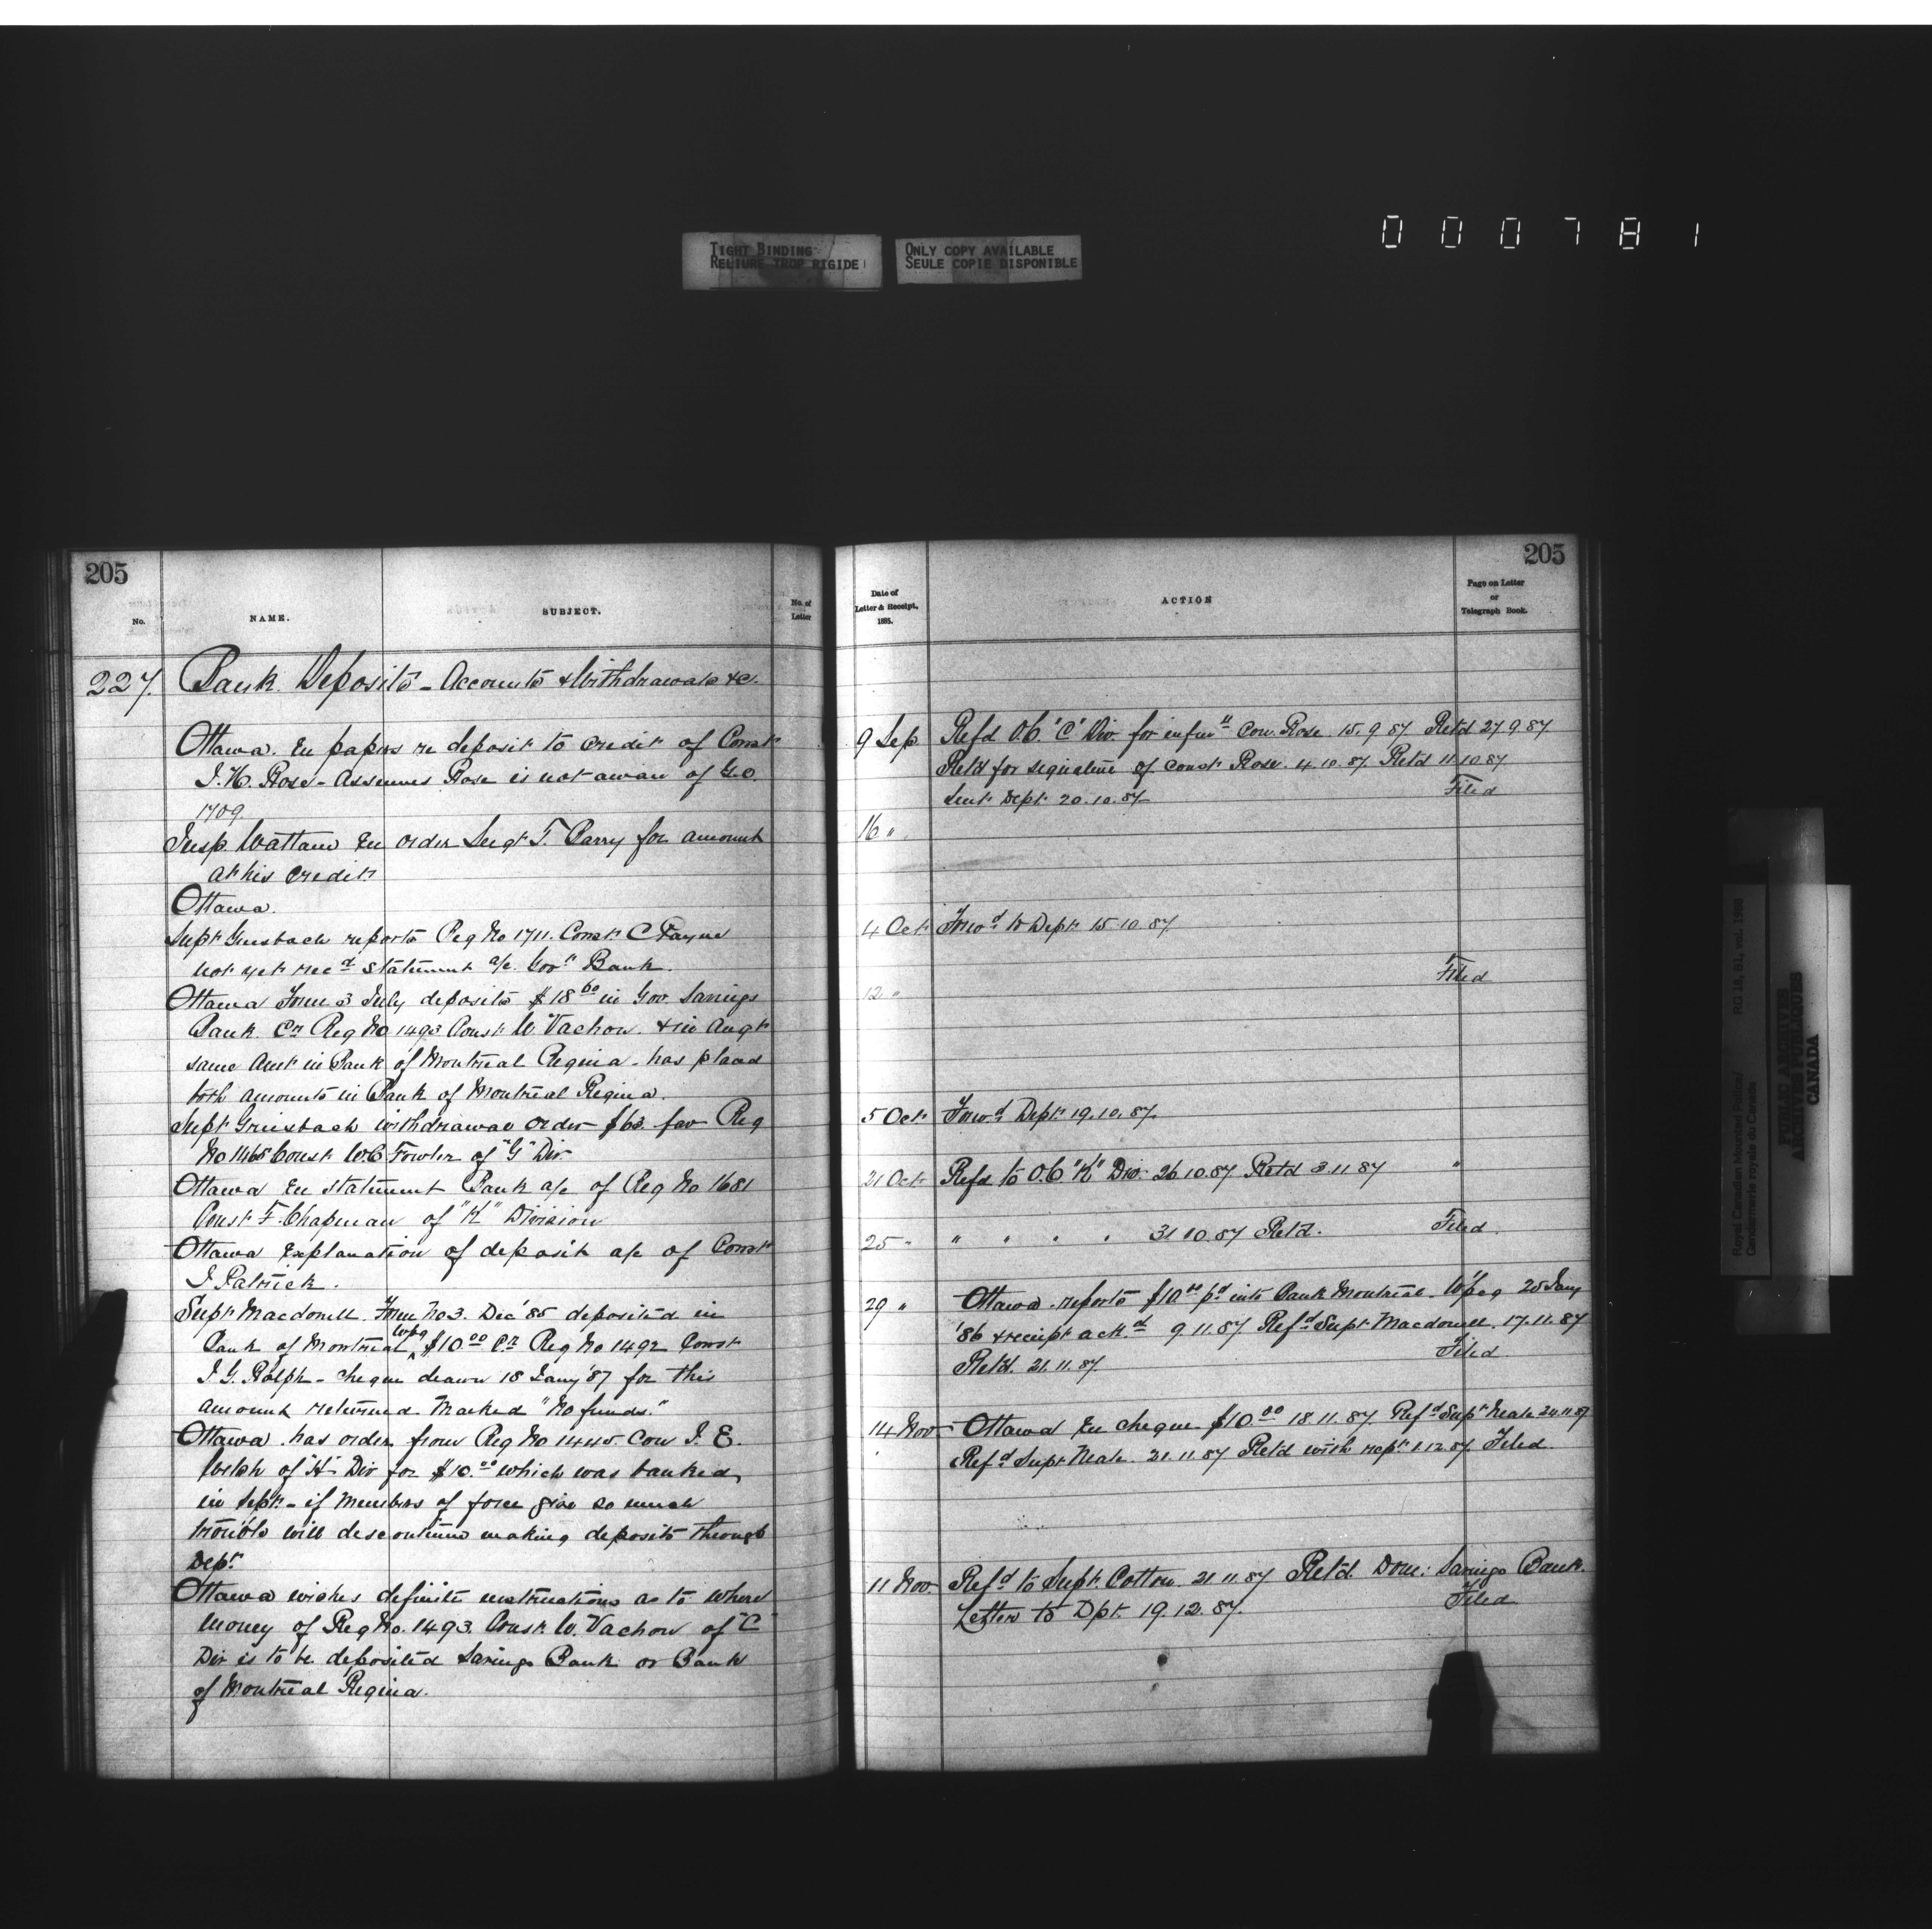 000781
TIGHT BINDING
RELIURE TROP RIGIDE
ONLY COPY AVAILABLE
SEULE COPIE DISPONIBLE
205
No.
NAME.
SUBJECT.
No. of
Letter
227. Bank Deposits - Accounts & Withdrawals &c.
Ottawa. En papers re deposit to credit of Const
J. H. Rose - Assumes Rose is not aware of G.O.
1709.
Insp. Wattam En order Sergt T. Parry for amount
at his credit
Ottawa.
Supt Griesbach reports Reg No 1711. Const C Payne
not yet recd statement a/c. Govt Bank.
Ottawa Form 3 July deposits $18 60 in Gov. Savings
Bank. Cr Reg No 1493 Const W. Vachon. & in Augt
same Amt in Bank of Montreal Regina - has placed
both amounts in Bank of Montreal Regina.
Supt Griesbach withdrawal order $63. fav Reg
No 1465 Const W.C Fowler of "G" Div
Ottawa En statement Bank a/c of Reg No 1681
Const F. Chapman of "K" Division
Ottawa Explanation of deposit a/c of Const
J Patrick.
Supt Macdonell Form No 3. Dec '85 deposited in
Bank of Montreal Wpg $10 00 Cr Reg No 1492 Const
J. G. Rolph - cheque drawn 18 Jany '87 for this
amount returned Marked "No funds."
Ottawa. has order from Reg No 1445. Con J. E.
Welsh of "H" Div for $10.00 which was banked
in Sept - if Members of force give so much
trouble will discontinue making deposits through
Dept
Ottawa wishes definite instructions as to where
Money of Reg No. 1493. Const. W. Vachon of "C"
Div is to be deposited Savings Bank or Bank
of Montreal Regina.
205
Date of
Letter & Receipt,
1885.
ACTION
Page on Letter
or
Telegraph Book.
9 Sep Refd O.C. 'C' Div. for infmn Con. Rose 15.9.87 Retd 27.9.87
Retd for signature of Const Rose. 4.10.87 Retd 11.10.87
Sent Dept 20.10.87 Filed
16 "
4 Oct Forwd to Dept 15.10.87
Filed
12 "
5 Oct Forwd Dept 19.10.87.
21 Oct Refd to O.C "K" Div. 26.10.87 Retd 3.11.87 "
25 " " " " " 31.10.87 Retd. Filed
29 " Ottawa. reports $10.00 pd into Bank Montreal. W'peg 25 Jany
'86 & receipt ackd 9.11.87 Refd Supt Macdonell. 17.11.87
Retd. 21.11.87. Filed
14 Nov Ottawa En cheque $10.00 18.11.87 Refd Supt Neale 24.11.87
Refd Supt Neale. 21.11.87 Retd with rept 1.12.87. Filed.
11 Nov. Refd to Supt. Cotton. 21.11.87 Retd. Dom: Savings Bank.
Letter to Dpt. 19.12.87. Filed
Royal Canadian Mounted Police/ RG 18, B1, vol. 1998
Gendarmerie royale du Canada
PUBLIC ARCHIVES
ARCHIVES PUBLIQUES
CANADA